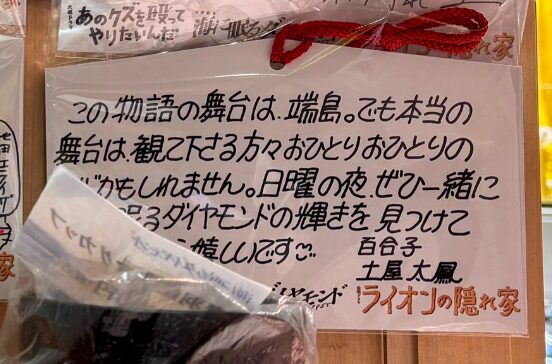 あのクズを殴って
やりたいんだ
海に眠るダ
の隠れ家
この物語の舞台は、端島。でも本当の
舞台は、観て下さる方々おひとりおひとりの
かもしれません。日曜の夜、ぜひ一緒に
眠るダイヤモンドの輝きを見つけて
嬉しいです
百合子
土屋太鳳
ダイヤモンド
ライオンの隠れ家
家
マグカップ
海に眠るダイヤモンド